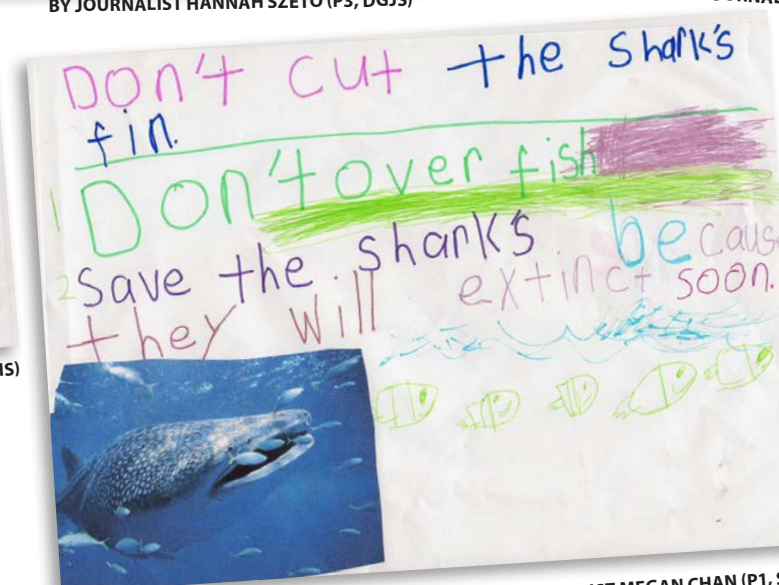 BY JOURNALIST HANNAH SZETO (P3, DGJS)
Don't cut the Shark's
fin.
1 Don't over fish
2 Save the shark's because
they will extinct soon.
MEGAN CHAN (P1,